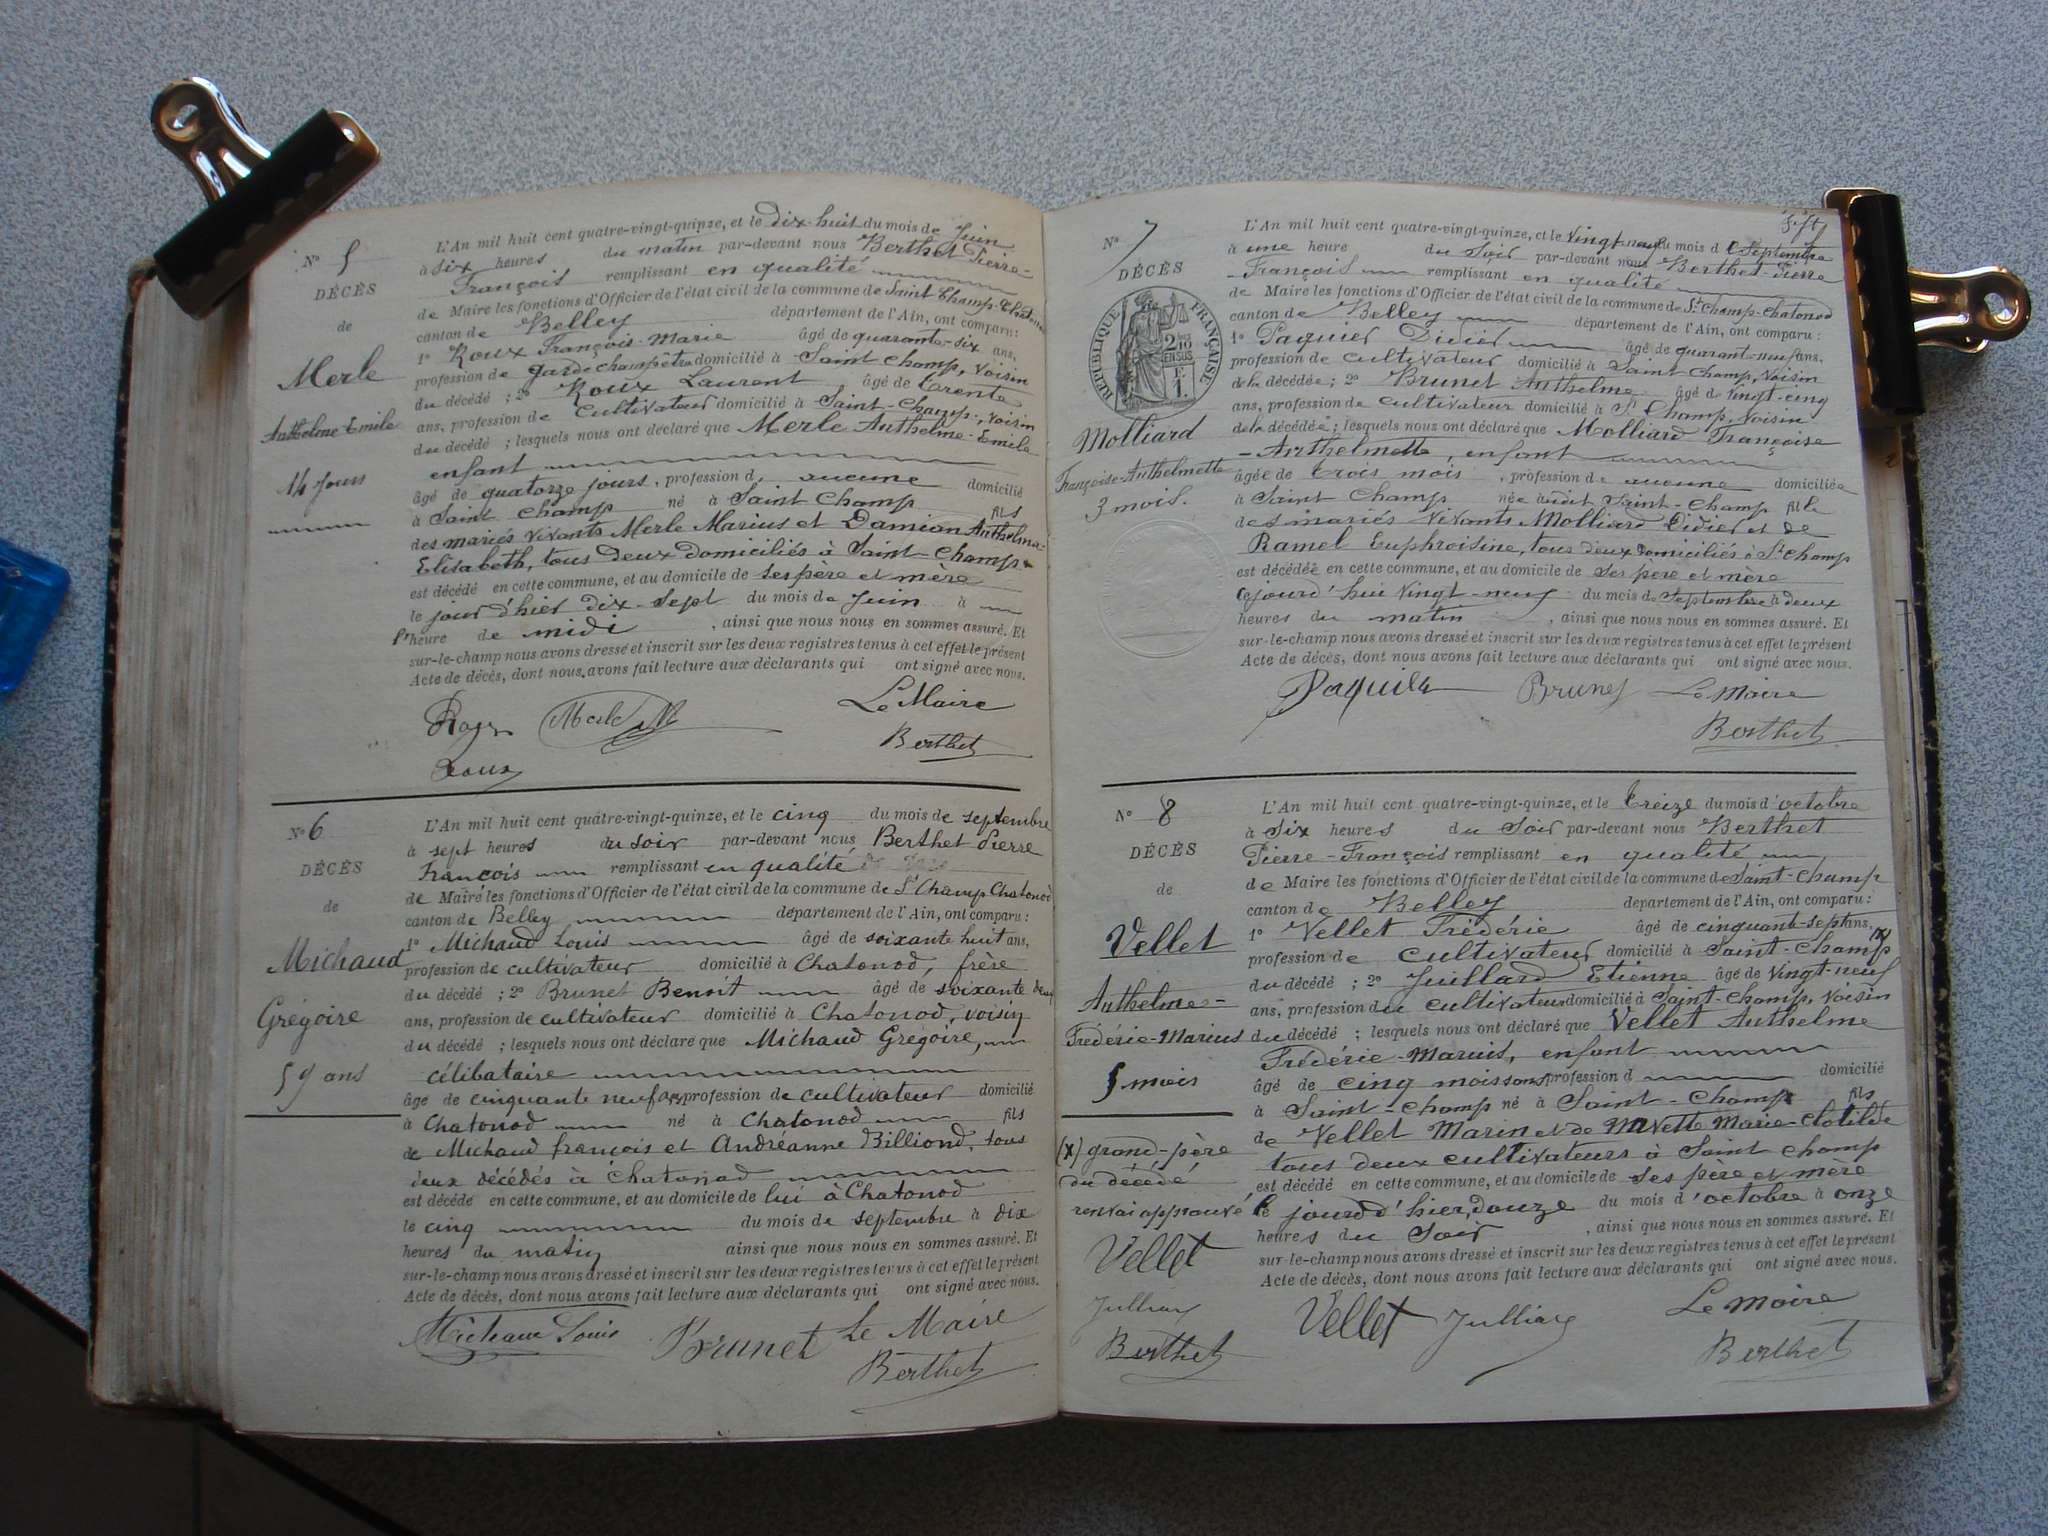 N° 5
DÉCÈS
de
Merle
Anthelme Emile
14 jours
L'An mil huit cent quatre-vingt-quinze, et le dix-huit du mois de Juin
à six heures du matin par-devant nous Berthet Pierre-
François remplissant en qualité
de Maire les fonctions d'Officier de l'état civil de la commune de Saint Champ-Chatonod
canton de Belley département de l'Ain, ont comparu:
1° Roux François-Marie âgé de quarante-six ans,
profession de garde champêtre domicilié à Saint Champ, voisin
du décédé ; 2° Roux Laurent âgé de trente
ans, profession de Cultivateur domicilié à Saint-Champ, voisin
du décédé ; lesquels nous ont déclaré que Merle Anthelme-Emile
enfant
âgé de quatorze jours, profession d aucune domicilié
à Saint Champ né à Saint Champ fils
des mariés vivants Merle Marius et Damian Anthelma-
Elisabeth, tous deux domiciliés à Saint-Champ
est décédé en cette commune, et au domicile de ses père et mère
le jour d'hier dix-sept du mois de Juin à
l'heure de midi , ainsi que nous nous en sommes assuré. Et
sur-le-champ nous avons dressé et inscrit sur les deux registres tenus à cet effet le présent
Acte de décès, dont nous avons fait lecture aux déclarants qui ont signé avec nous.
Le Maire
Roux Merle M
Berthet
Roux
N° 6
DÉCÈS
de
Michaud
Grégoire
59 ans
L'An mil huit cent quatre-vingt-quinze, et le cinq du mois de septembre
à sept heures du soir par-devant nous Berthet Pierre
François remplissant en qualité
de Maire les fonctions d'Officier de l'état civil de la commune de St Champ Chatonod
canton de Belley département de l'Ain, ont comparu:
1° Michaud Louis âgé de soixante huit ans,
profession de cultivateur domicilié à Chatonod, frère
du décédé ; 2° Brunet Benoit âgé de soixante deux
ans, profession de cultivateur domicilié à Chatonod, voisin
du décédé ; lesquels nous ont déclaré que Michaud Grégoire,
célibataire
âgé de cinquante neuf ans profession de cultivateur domicilié
à Chatonod né à Chatonod fils
de Michaud françois et Andréanne Billiond, tous
deux décédés à Chatonod
est décédé en cette commune, et au domicile de lui à Chatonod
le cinq du mois de septembre à dix
heures du matin ainsi que nous nous en sommes assuré. Et
sur-le-champ nous avons dressé et inscrit sur les deux registres tenus à cet effet le présent
Acte de décès, dont nous avons fait lecture aux déclarants qui ont signé avec nous.
Michaud Louis Brunet Le Maire
Berthet
Sept
N° 7
DÉCÈS
RÉPUBLIQUE FRANÇAISE
2/10 EN SUS
Molliard
Françoise-Anthelmette
3 mois.
L'An mil huit cent quatre-vingt-quinze, et le vingt-neuf du mois de Septembre
à une heure du Soir par-devant nous Berthet-Pierre
-François remplissant en qualité
de Maire les fonctions d'Officier de l'état civil de la commune de St Champ-Chatonod
canton de Belley département de l'Ain, ont comparu:
1° Paquier Didier âgé de quarant-neuf ans,
profession de cultivateur domicilié à Saint Champ, voisin
de la décédée; 2° Brunet Anthelme âgé de vingt-cinq
ans, profession de cultivateur domicilié à St Champ, voisin
de la décédée; lesquels nous ont déclaré que Molliard Françoise
-Anthelmette, enfant
âgée de trois mois, profession de aucune domiciliée
à Saint Champ née à udit Saint-Champ fille
des mariés vivants Molliard Didier et de
Ramel Euphroisine, tous deux domiciliés à St Champ
est décédée en cette commune, et au domicile de ses père et mère
ajourd'hui vingt-neuf du mois de Septembre à deux
heures du matin , ainsi que nous nous en sommes assuré. Et
sur-le-champ nous avons dressé et inscrit sur les deux registres tenus à cet effet le présent
Acte de décès, dont nous avons fait lecture aux déclarants qui ont signé avec nous.
Brunet Le Maire
Berthet
N° 8
DÉCÈS
de
Vellet
Anthelme-
Frédéric-Marius
5 mois
(x) grand-père
du décédé
renvoi approuvé
Vellet
Julliard
Berthet
L'An mil huit cent quatre-vingt-quinze, et le treize du mois d'octobre
à Six heures du Soir par-devant nous Berthet
Pierre-François remplissant en qualité
de Maire les fonctions d'Officier de l'état civil de la commune de Saint-Champ
canton de Belley département de l'Ain, ont comparu:
1° Vellet Frédéric âgé de cinquant-sept ans,
profession de cultivateur domicilié à Saint-Champ (x)
du décédé ; 2° Juillard Etienne âgé de vingt-neuf
ans, profession du cultivateur domicilié à Saint-Champ, voisin
du décédé ; lesquels nous ont déclaré que Vellet Anthelme
Frédéric-Marius, enfant
âgé de cinq mois sans profession d domicilié
à Saint-Champ né à Saint-Champ fils
de Vellet Marin et de Marie-Clotilde
tous deux cultivateurs à Saint Champ
est décédé en cette commune, et au domicile de ses père et mère
le jourd d'hier, douze du mois d'octobre à onze
heures du Soir , ainsi que nous nous en sommes assuré. Et
sur-le-champ nous avons dressé et inscrit sur les deux registres tenus à cet effet le présent
Acte de décès, dont nous avons fait lecture aux déclarants qui ont signé avec nous.
Vellet Julliard Le Maire
Berthet